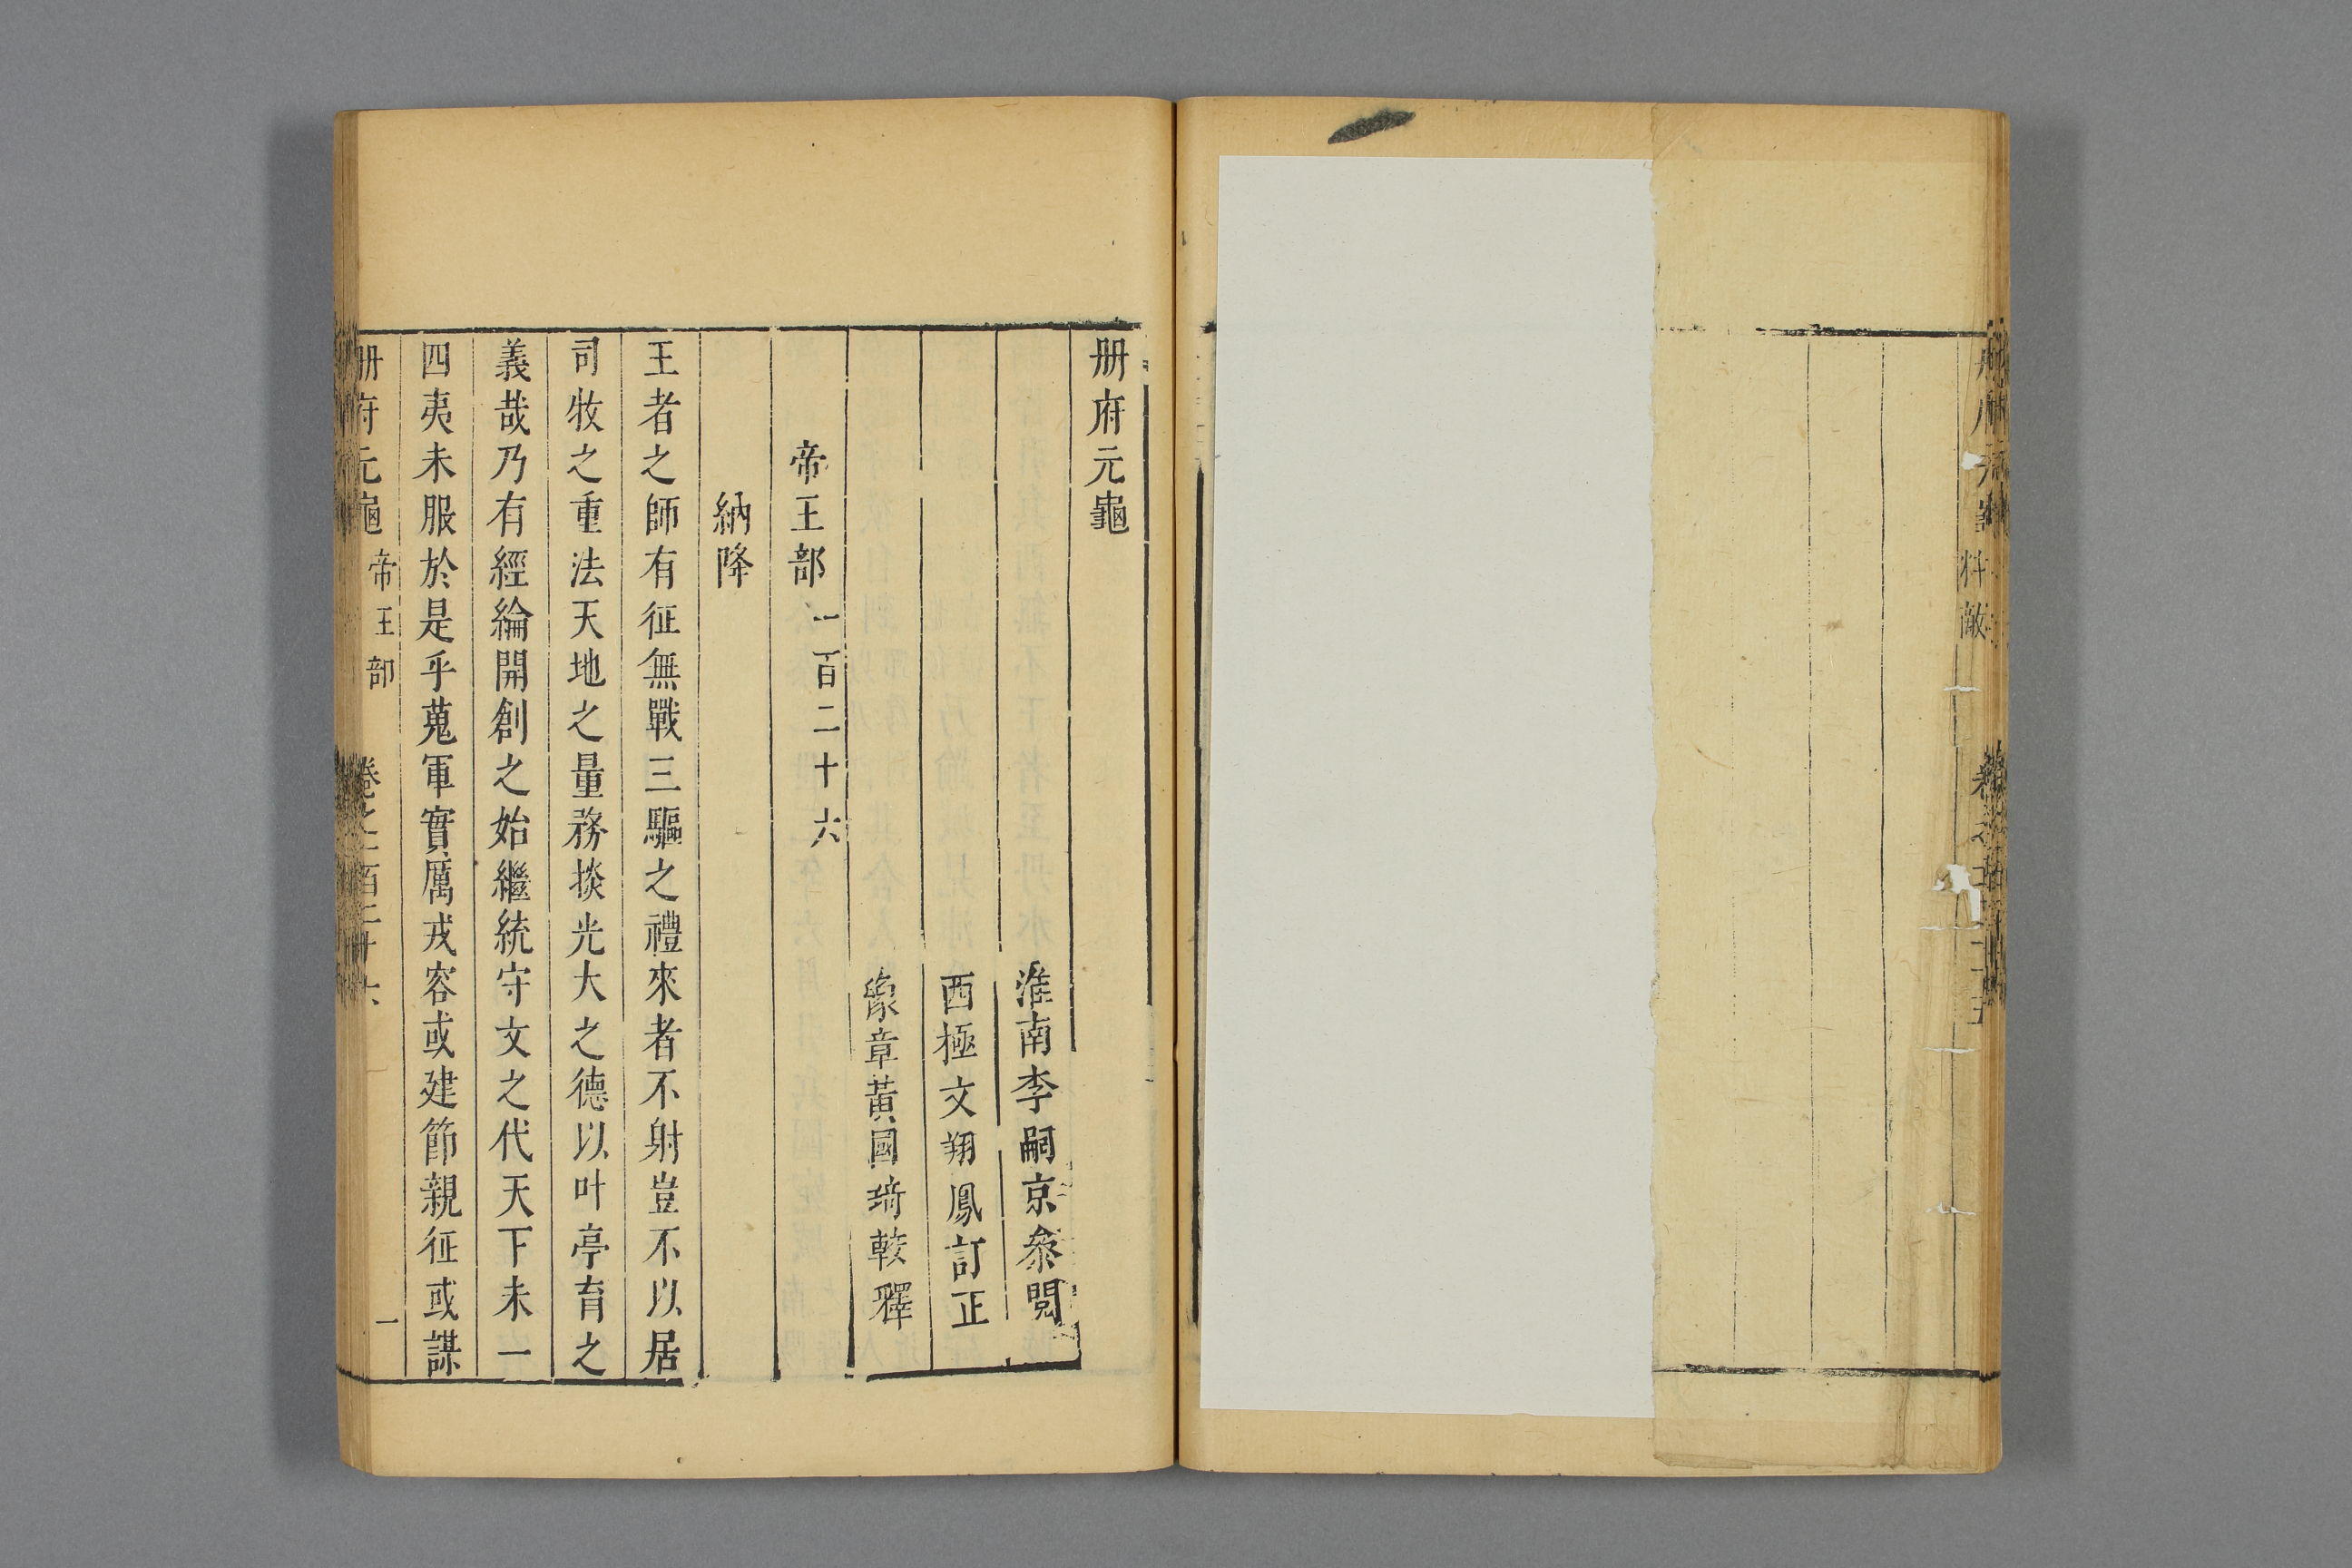 料敵
冊府元龜
淮南李嗣京叅閱
西極文翔鳳訂正
豫章黃國琦較釋
帝王部一百二十六
納降
王者之師有征無戰三驅之禮來者不射豈不以居
司牧之重法天地之量務掞光大之德以叶亭育之
義哉乃有經綸開創之始繼統守文之代天下未一
四夷未服於是乎蒐軍實厲戎容或建節親征或謀
冊府元龜 帝王部 卷之一百二十六 一